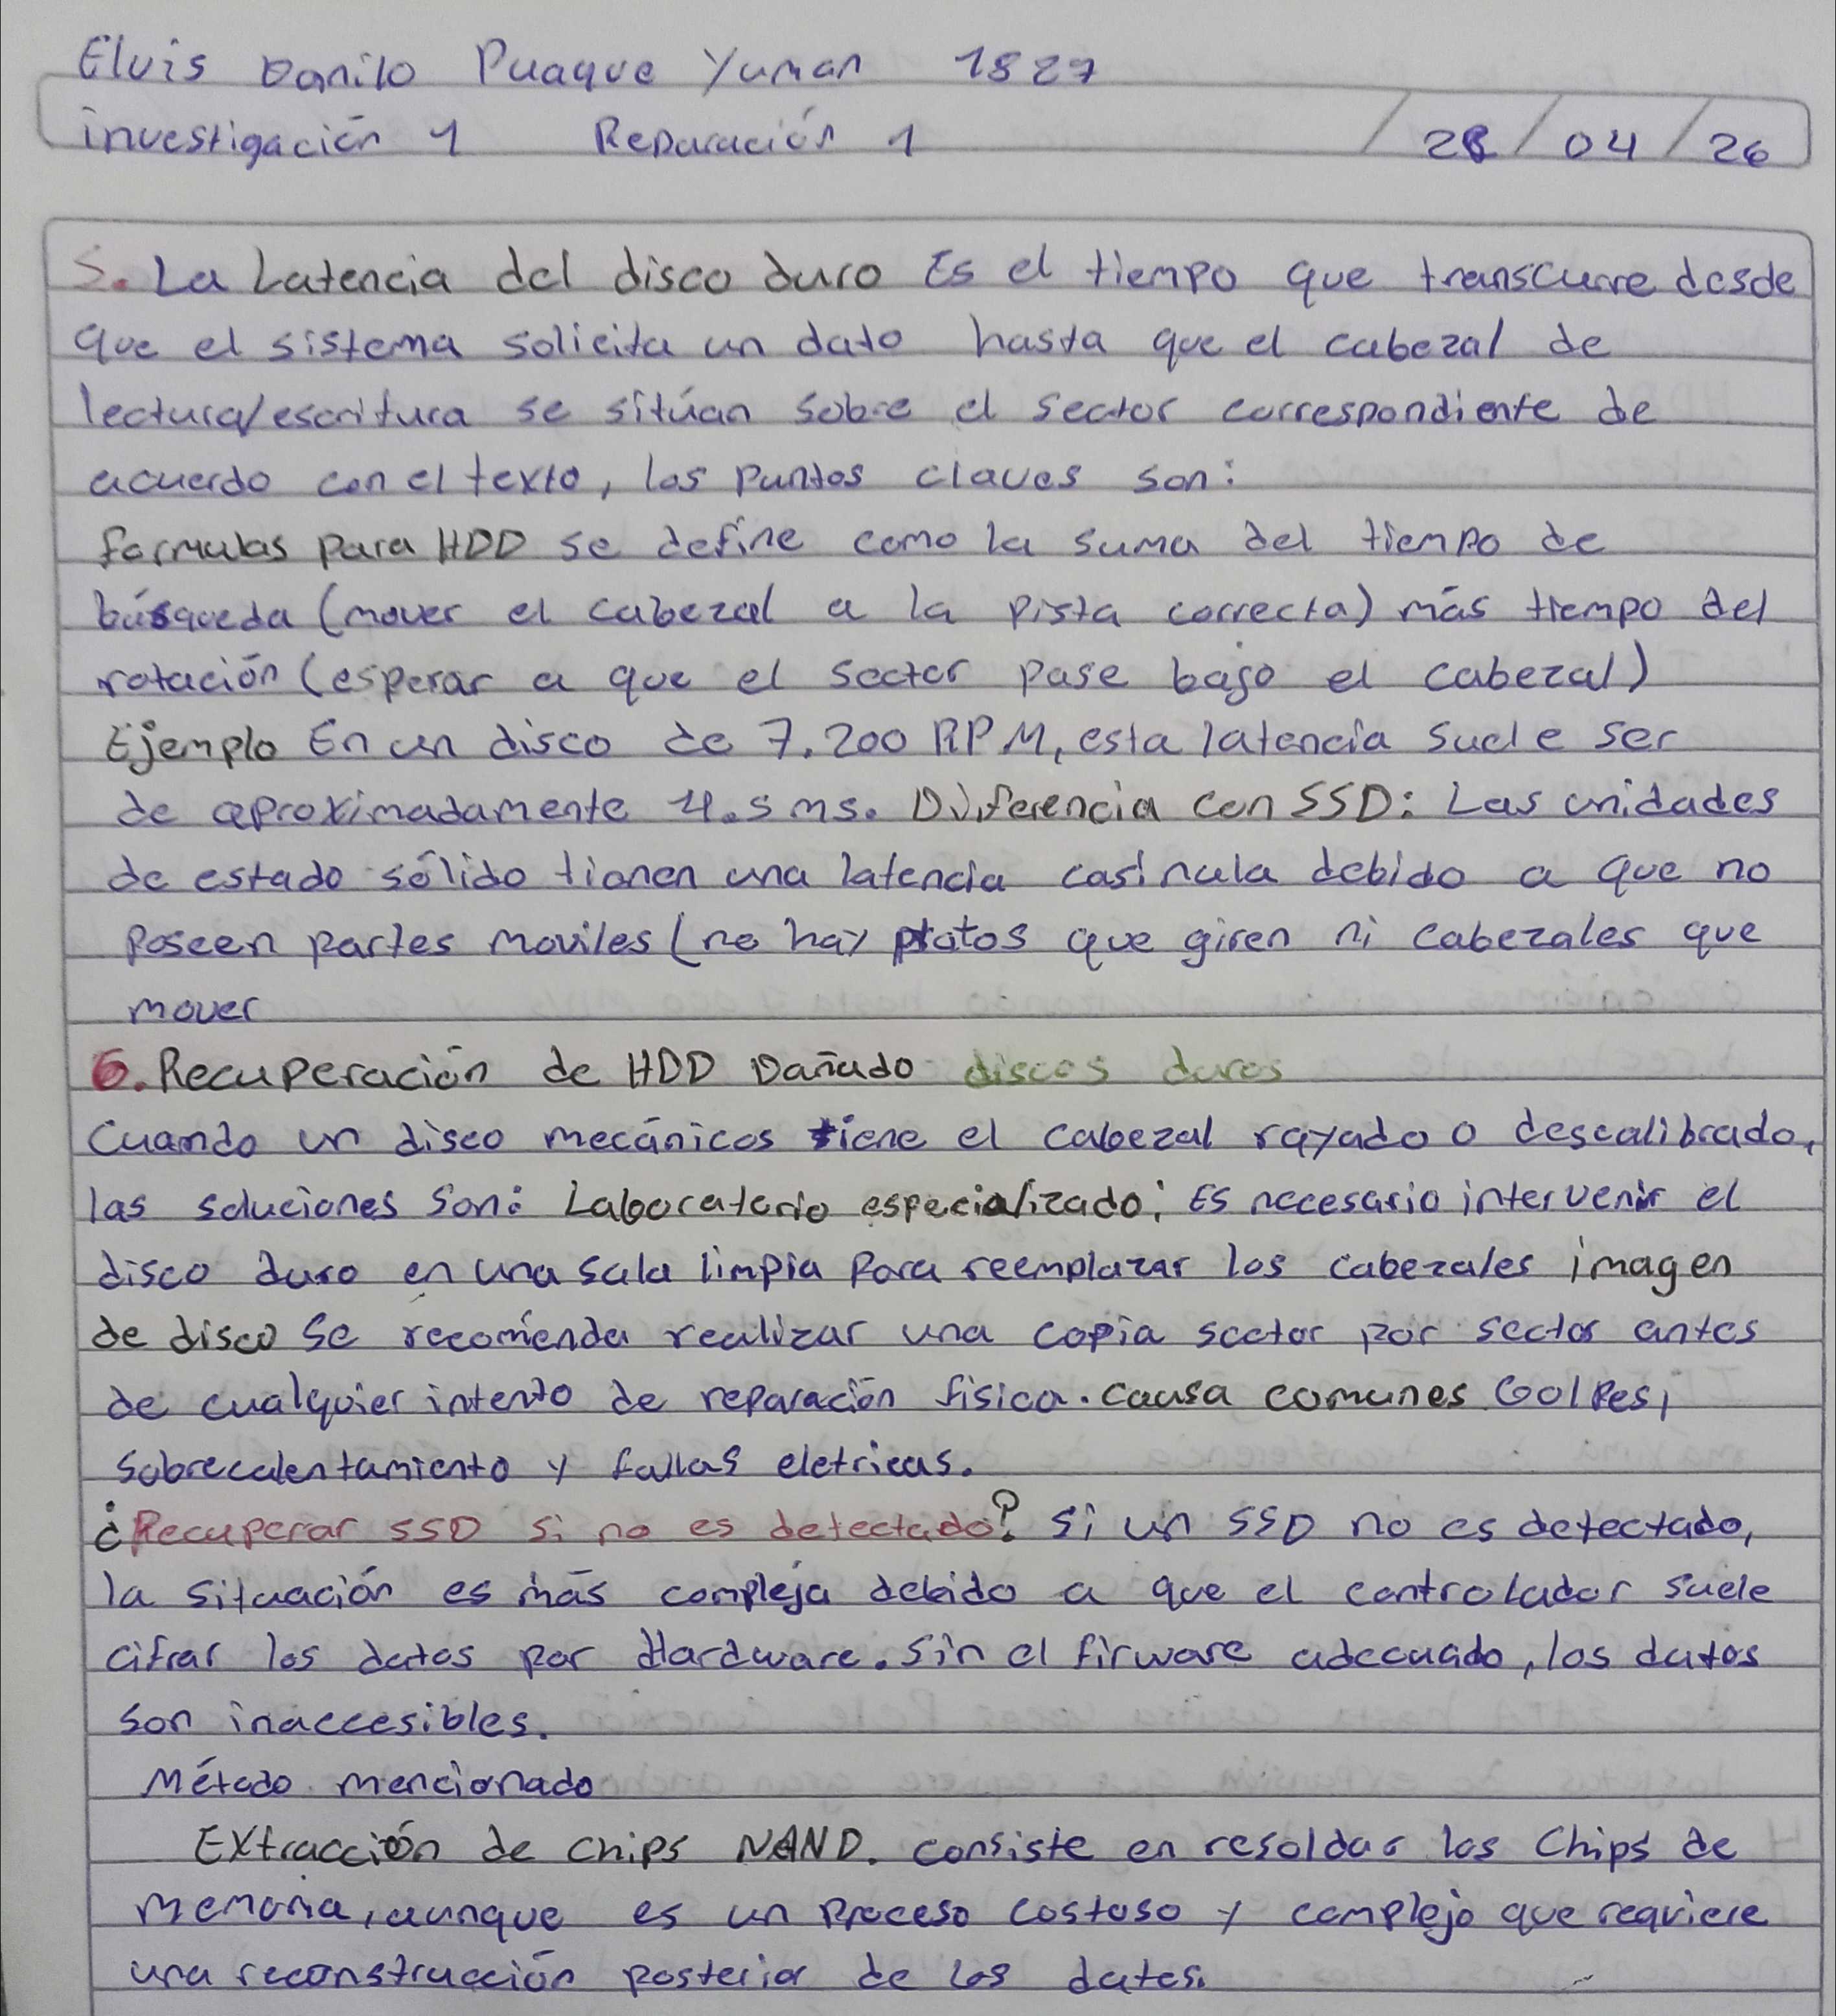 Elvis Danilo Puaque Yuman 1827
investigación 1 Reparación 1 / 28 / 04 / 26
5. La Latencia del disco duro Es el tiempo que transcurre desde
que el sistema solicita un dato hasta que el cabezal de
lectura/escritura se sitúan sobre el sector correspondiente de
acuerdo con el texto, los puntos claves son:
formulas para HDD se define como la suma del tiempo de
búsqueda (mover el cabezal a la pista correcta) más tiempo del
rotación (esperar a que el sector pase bajo el cabezal)
Ejemplo En un disco de 7.200 RPM, esta latencia suele ser
de aproximadamente 4.5 ms. Diferencia con SSD: Las unidades
de estado sólido tienen una latencia casi nula debido a que no
Poseen partes moviles (no hay platos que giren ni cabezales que
mover
6. Recuperación de HDD Dañado discos duros
Cuando un disco mecánicos tiene el cabezal rayado o descalibrado,
las soluciones son: Laboratorio especializado: Es necesario intervenir el
disco duro en una sala limpia Para reemplazar los cabezales imagen
de disco Se recomienda realizar una copia sector por sector antes
de cualquier intento de reparación fisica. Causa comunes Golpes,
Sobrecalentamiento y fallas eletricas.
¿Recuperar SSD si no es detectado? si un SSD no es detectado,
la situación es más compleja debido a que el controlador suele
cifrar los datos por Hardware. Sin el firware adecuado, los datos
son inaccesibles.
Método mencionado
Extracción de chips NAND. consiste en resoldar los Chips de
memoria, aunque es un Proceso costoso y complejo que requiere
una reconstrucción posterior de los datos.